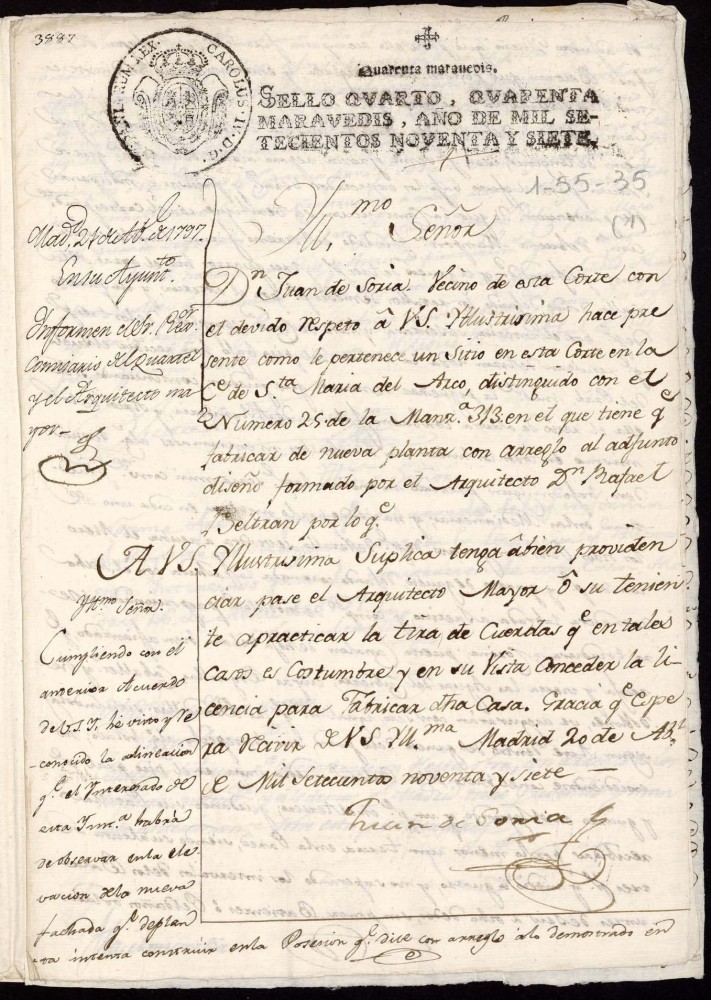 3887
HISPANIARUM REX. CAROLUS IV D.G.
Quarenta maravedis.
SELLO QVARTO, QVARENTA
MARAVEDIS, AÑO DE MIL SE-
TECIENTOS NOVENTA Y SIETE.
1-55-35
(1)
Yll.mo Señor
D.n Juan de Soria Vecino de esta Corte con
el devido respeto â VS. Yllustrisima hace pre
sente como le pertenece un Sitio en esta Corte en la
C.e de S.ta Maria del Arco, distinguido con el
Numero 25 de la Manz.a 313. en el que tiene q.e
fabricar de nueva planta con arreglo al adjunto
diseño formado por el Arquitecto D.n Rafael
Beltran por lo q.e
A VS. Yllustrisima Suplica tenga âbien providen
ciar pase el Arquitecto Mayor ô su tenien
te apracticar la tira de Cuerdas q.e en tales
casos es Costumbre y en su Vista Conceder la li-
cencia para Fabricar dha Casa. Gracia q.e Espe
ra Recivir de VS. Yll.ma Madrid 20 de Ab.l
de Mil Setecientos noventa y siete
Juan de Soria
Mad.d 21 de Ab.l de 1797.
En su Ayunt.to
Informen el Sr. Rex.or
Comisario del Quartel
y el Arquitecto ma
yor
Yll.mo Señor
Cumpliendo con el
anterior Acuerdo
de V.S.Y. he visto y re
conocido la alineacion
q.e el Interesado de
esta Inst.a habrá
de observar en la ele
vacion de la nueva
fachada q.e de plan
ta intenta construir en la Posesion q.e dice con arreglo álo demostrado en